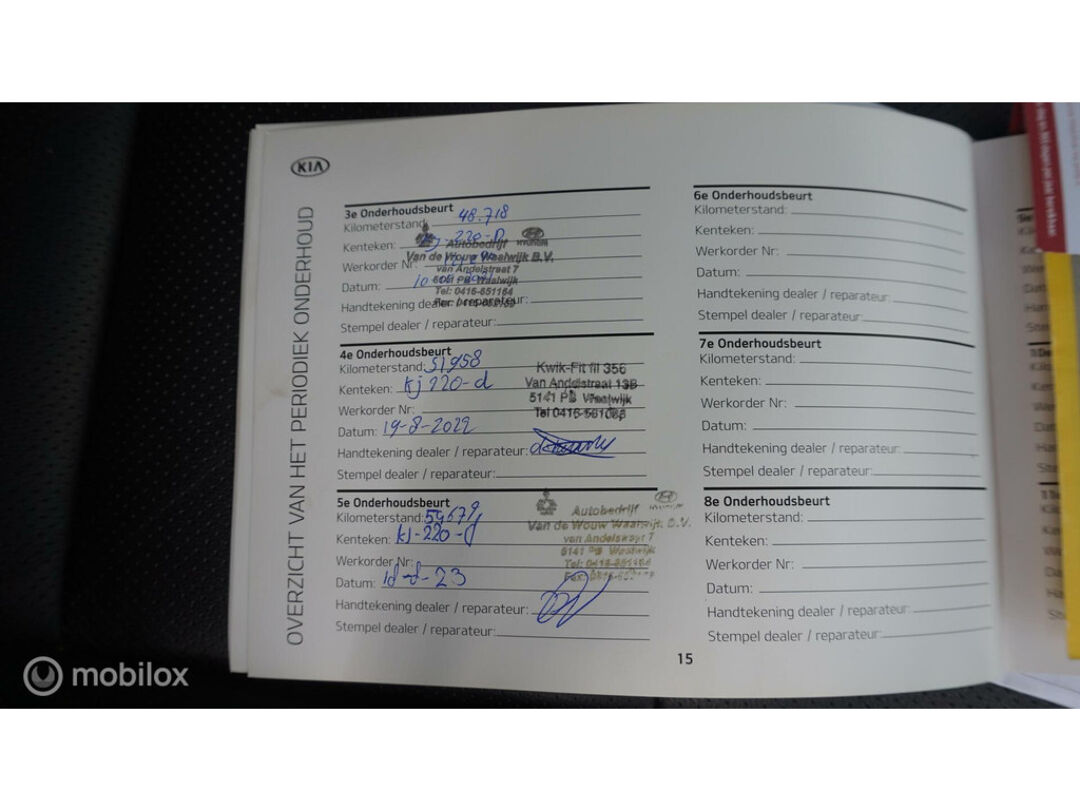 KIA
OVERZICHT VAN HET PERIODIEK ONDERHOUD
3e Onderhoudsbeurt
Kilometerstand: 48.718
Kenteken: -220-D
Werkorder Nr:
Datum: 10
Handtekening dealer / reparateur:
Stempel dealer / reparateur:
Autobedrijf HYUNDAI
Van de Wouw Waalwijk B.V.
van Andelstraat 7
5141 PB Waalwijk
Tel: 0416-651164
4e Onderhoudsbeurt
Kilometerstand: 51958
Kenteken: kj 220-d
Werkorder Nr:
Datum: 19-8-2022
Handtekening dealer / reparateur:
Stempel dealer / reparateur:
Kwik-Fit fil 356
Van Andelstraat 13B
5141 PB Waalwijk
Tel 0416-561066
5e Onderhoudsbeurt
Kilometerstand: 59679
Kenteken: KJ-220-D
Werkorder Nr:
Datum: 23
Handtekening dealer / reparateur:
Stempel dealer / reparateur:
Autobedrijf
Van de Wouw Waalwijk B.V.
van Andelstraat 7
5141 PB Waalwijk
6e Onderhoudsbeurt
Kilometerstand:
Kenteken:
Werkorder Nr:
Datum:
Handtekening dealer / reparateur:
Stempel dealer / reparateur:
7e Onderhoudsbeurt
Kilometerstand:
Kenteken:
Werkorder Nr:
Datum:
Handtekening dealer / reparateur:
Stempel dealer / reparateur:
8e Onderhoudsbeurt
Kilometerstand:
Kenteken:
Werkorder Nr:
Datum:
Handtekening dealer / reparateur:
Stempel dealer / reparateur:
15
mobilox